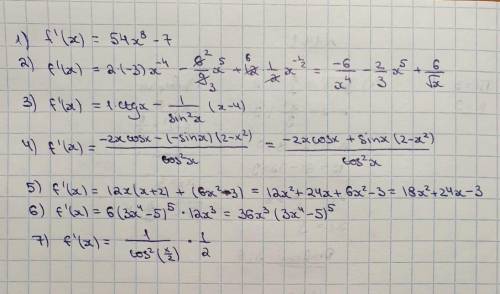 1) f'(x) = 54x⁸ - 7
2) f'(x) = 2·(-3)x⁻⁴ - 6²/9₃ x⁵ + 12⁶ · 1/2 x^(-1/2) = -6/x⁴ - 2/3 x⁵ + 6/√x
3) f'(x) = 1·ctgx - 1/sin²x (x-4)
4) f'(x) = (-2xcosx - (-sinx)(2-x²))/cos²x = (-2xcosx + sinx(2-x²))/cos²x
5) f'(x) = 12x(x+2) + (6x²-3) = 12x² + 24x + 6x² - 3 = 18x² + 24x - 3
6) f'(x) = 6(3x⁴-5)⁵ · 12x³ = 36x³(3x⁴-5)⁵
7) f'(x) = 1/cos²(x/2) · 1/2